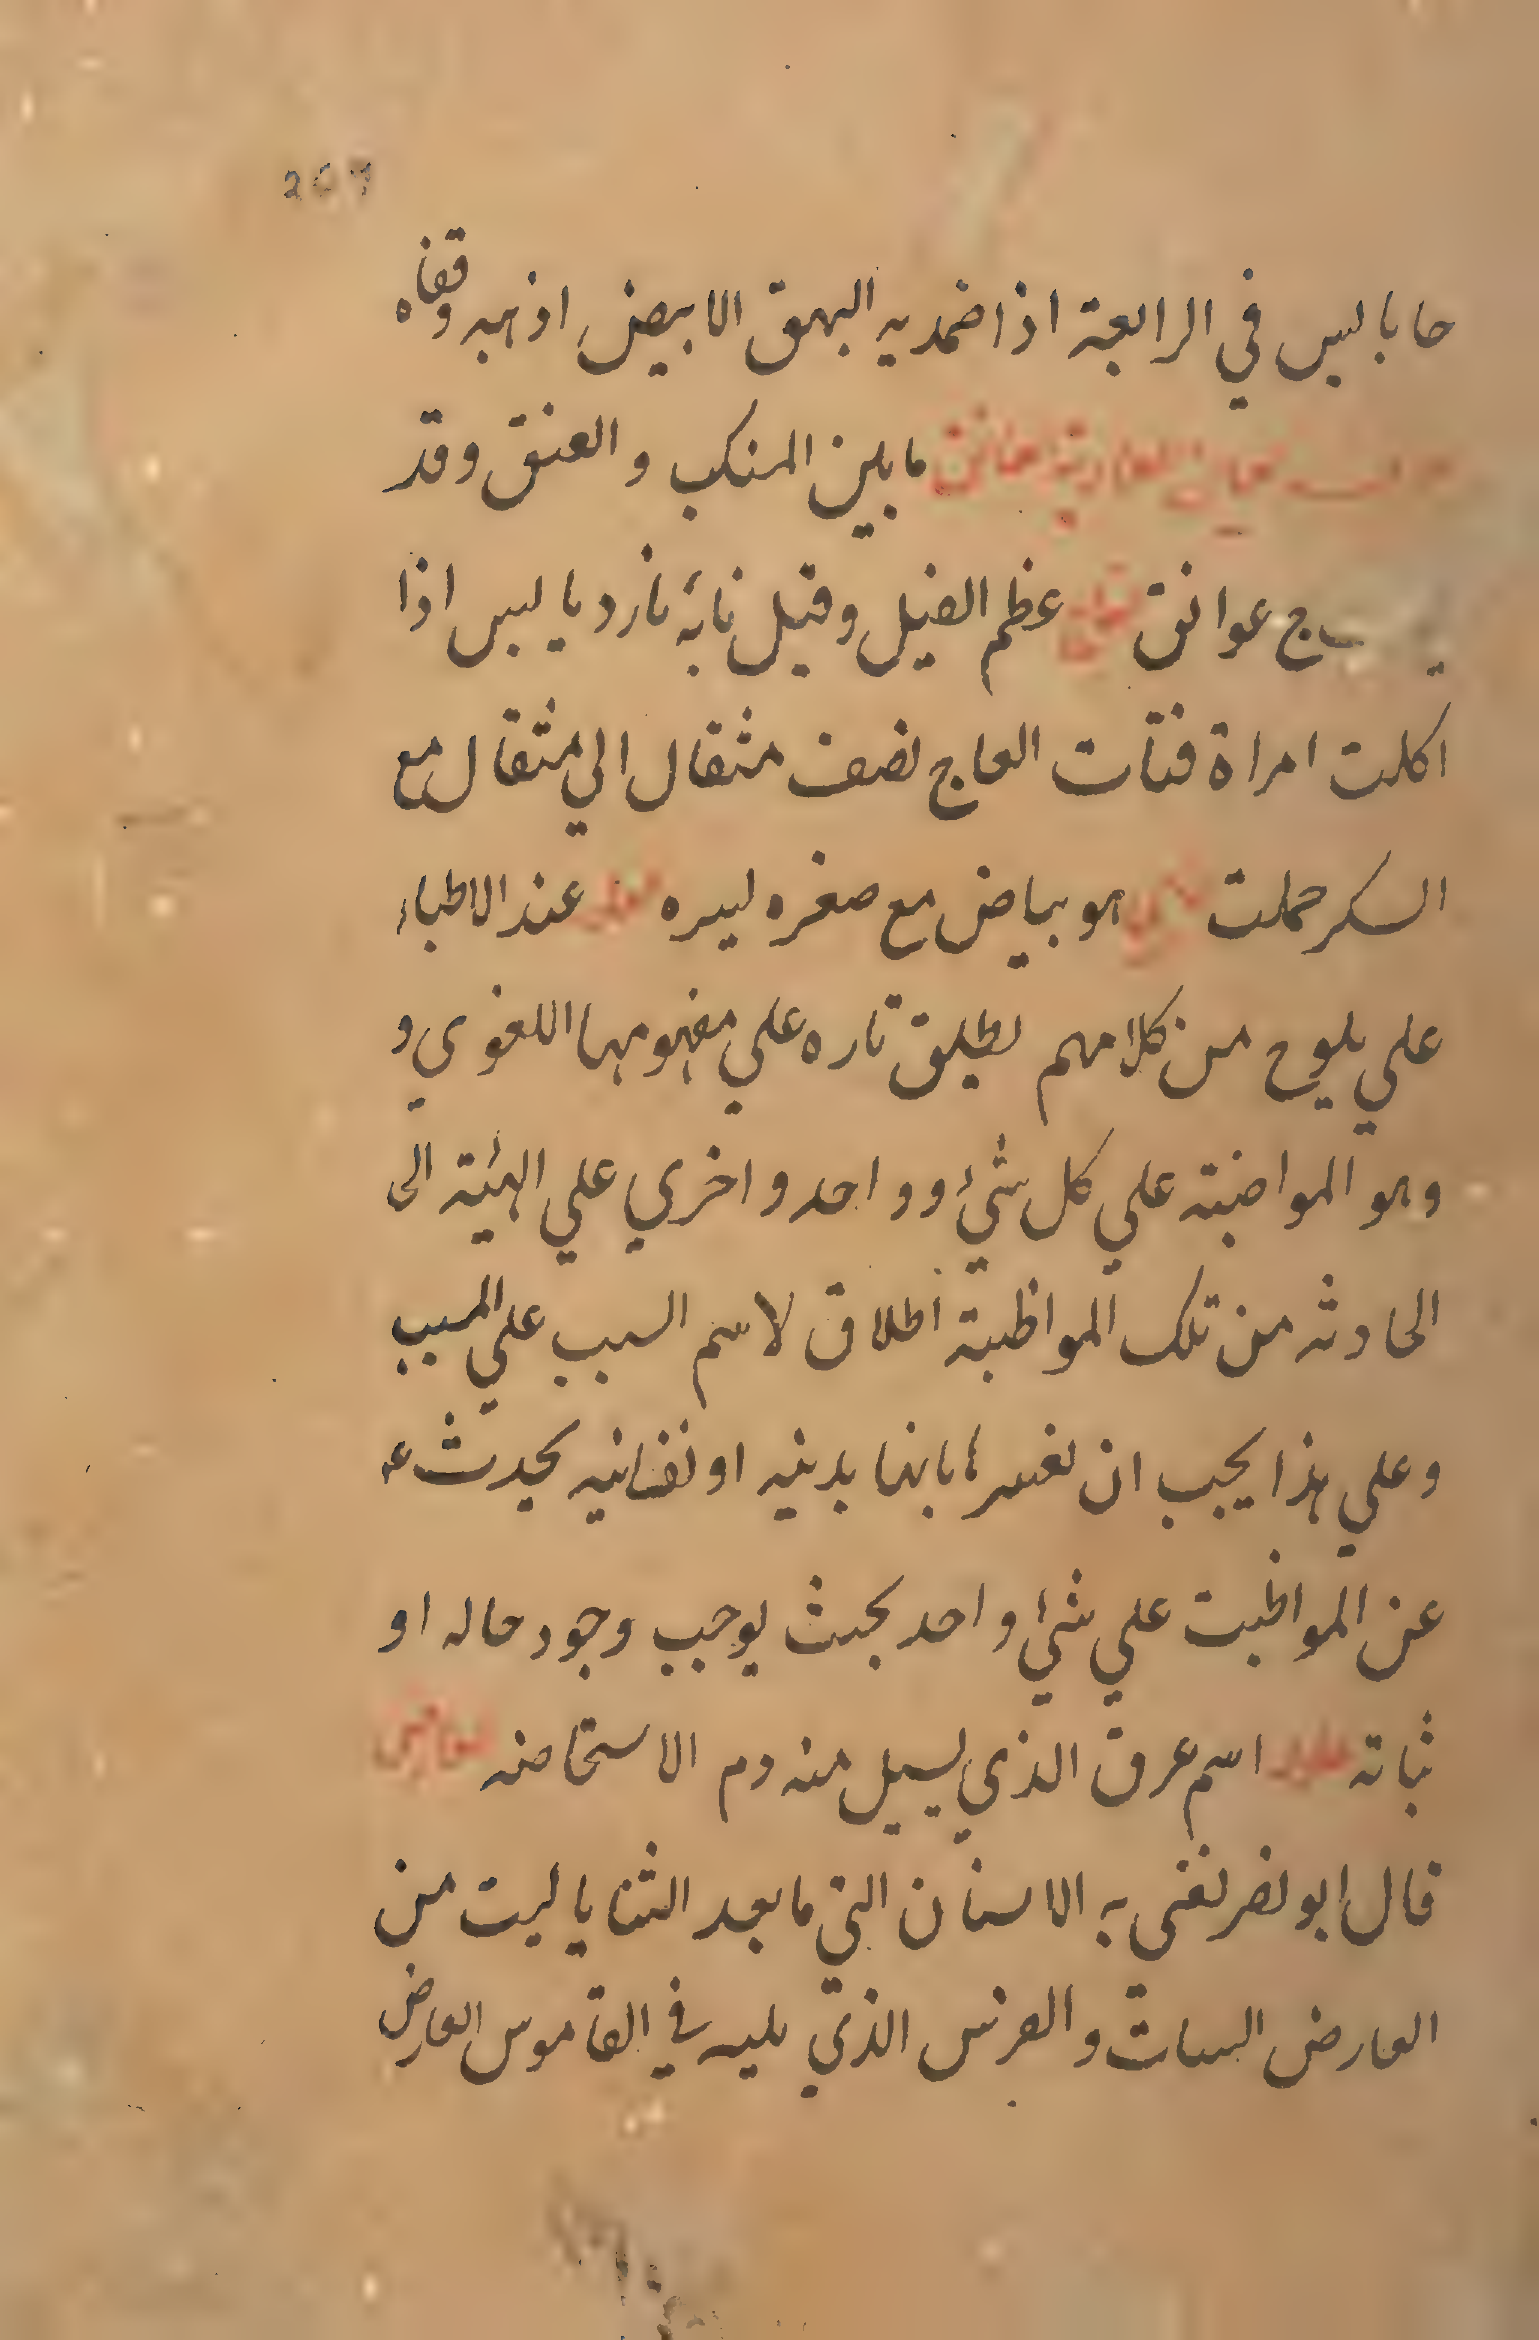 267
حا يابس في الرابعة اذا ضمد به البهق الابيض اذهبه وقفاه
عاتق ما بين المنكب والعنق وقد
ج عواتق عاج عظم الفيل وقيل نابه بارد يابس اذا
اكلت امراة فتات العاج نصف مثقال الي مثقال مع
السكر حملت هو بياض مع صفره يسيره عند الاطباء
علي يلوح من كلامهم تطلق تاره علي مفهومها اللغوي و
وهو المواضبة علي كل شيء وواحد واخري علي الهيئة الى
الحادثه من تلك المواظبة اطلاق لاسم السبب علي المسبب
وعلي هذا يجب ان تفسر بانها بدنيه او نفسانيه يحدث عـ
عن المواظبت علي شيء واحد بحيث يوجب وجود حاله او
ثباته اسم عرق الذي يسيل منه دم الاستحاضه عوارض
قال ابو نصر نعني به الاسنان التي ما بعد الثنايا ليت من
العارض الساب والضرس الذي يليه في القاموس العارض